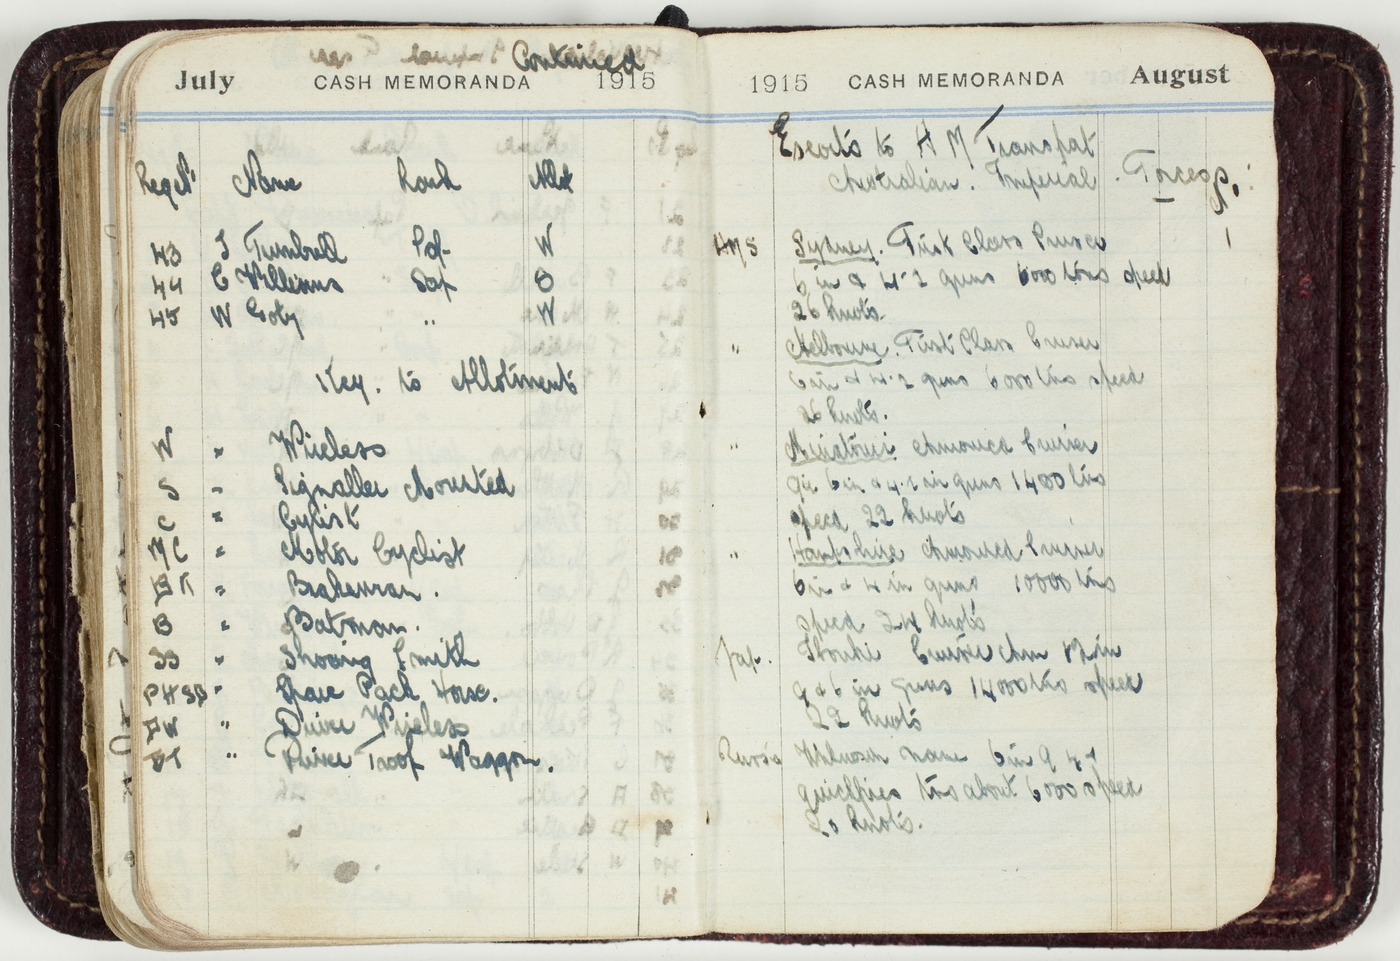 Continued
July CASH MEMORANDA 1915
Regtl No Name Rank Allot
43 J Turnbull Sap W
44 C Williams Sap B
45 W Goby " W
Key. to Allotments
W " Wireless
S " Signaller Mounted
C " Cyclist
MC " Motor Cyclist
" Brakesman.
B " Batman.
SS " Shoeing Smith
PHSP " Spare Pack Horse.
DW " Driver Wireless
DT " Driver Troop Waggon.
"
1915 CASH MEMORANDA August
Escorts to H M Transpat
Australian. Imperial. Forces
HMS Sydney. First Class Cruiser
6 in & 4.2 guns 6000 tns speed
26 knots.
" Melbourne. First Class Cruiser
6 in & 4.2 guns 6000 tns speed
26 knots.
" Minatour Armoured Cruiser
9.2 6 in & 4.1 in guns 1400 tns
speed 22 knots
" Hampshire Armoured Cruiser
6 in & 4 in guns 10000 tns
speed 24 knots
Jap. Cruiser 12 in
9 & 6 in guns 14000 tns speed
22 knots
Russia Unknown name 6 in & 4.7
quickfires tns about 6000 speed
20 knots.